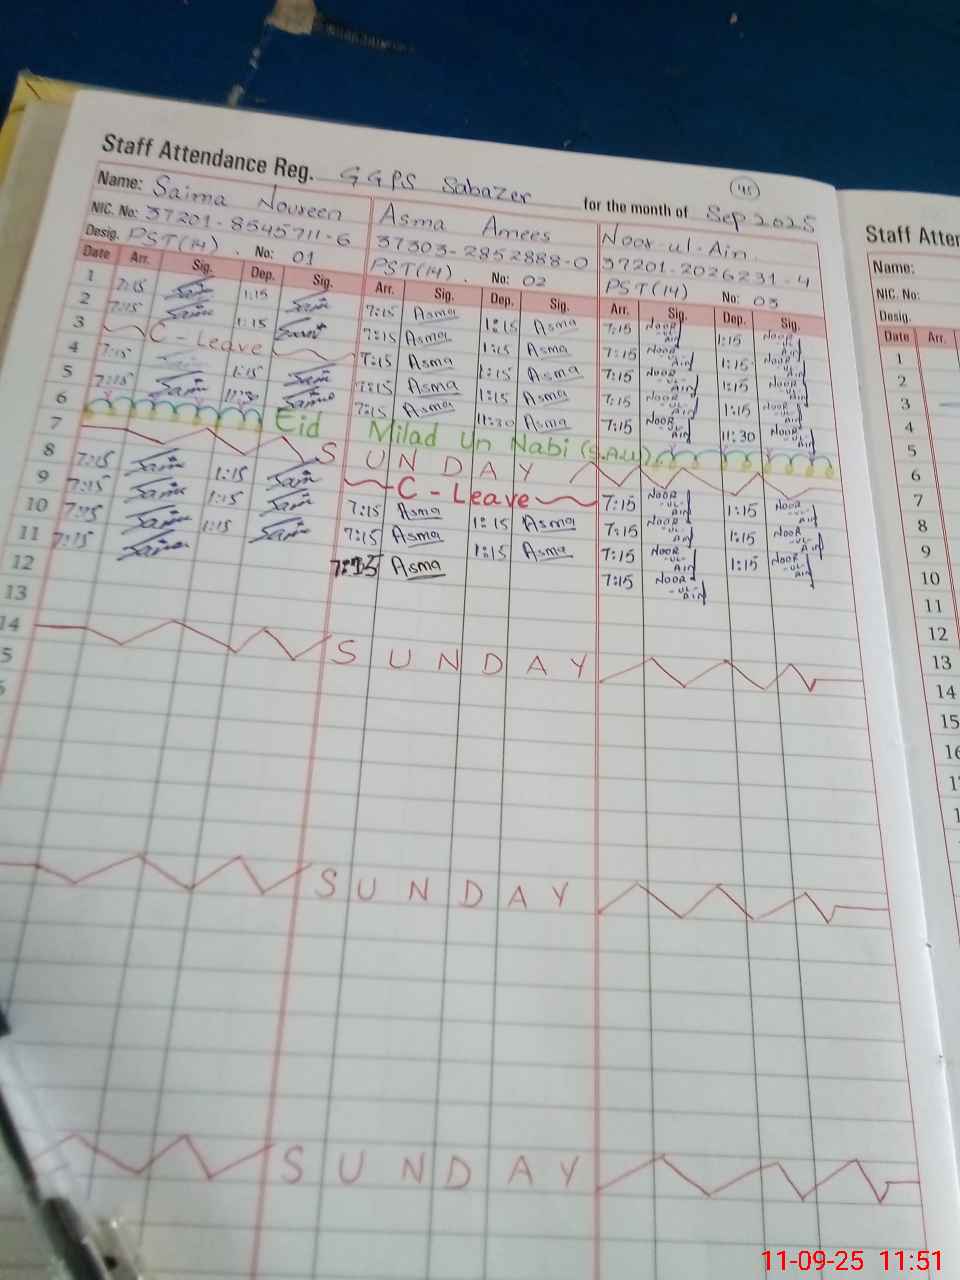 Staff Attendance Reg. GGPS Sabazer for the month of Sep 2025
45
Name: Saima Noureen Asma Amees Noor-ul-Ain
NIC. No: 37201-8545711-6 37303-2852888-0 37201-2026231-4
Desig. PST(14). No: 01 PST(14). No: 02 PST(14) No: 03
Date Arr. Sig. Dep. Sig. Arr. Sig. Dep. Sig. Arr. Sig. Dep. Sig.
1 7:15 Saim 1:15 Saim 7:15 Asma 1:15 Asma 7:15 Noor-ul-Ain 1:15 Noor-ul-Ain
2 7:15 Saim 1:15 Saim 7:15 Asma 1:15 Asma 7:15 Noor-ul-Ain 1:15 Noor-ul-Ain
3 C-Leave 7:15 Asma 1:15 Asma 7:15 Noor-ul-Ain 1:15 Noor-ul-Ain
4 7:15 Saim 1:15 Saim 7:15 Asma 1:15 Asma 7:15 Noor-ul-Ain 1:15 Noor-ul-Ain
5 7:15 Saim 11:30 Saim 7:15 Asma 11:30 Asma 7:15 Noor-ul-Ain 11:30 Noor-ul-Ain
6 Eid Milad Un Nabi (S.A.W)
7 SUNDAY
8 7:15 Saim 1:15 Saim C-Leave 7:15 Noor-ul-Ain 1:15 Noor-ul-Ain
9 7:15 Saim 1:15 Saim 7:15 Asma 1:15 Asma 7:15 Noor-ul-Ain 1:15 Noor-ul-Ain
10 7:15 Saim 1:15 Saim 7:15 Asma 1:15 Asma 7:15 Noor-ul-Ain 1:15 Noor-ul-Ain
11 7:15 Saim 7:15 Asma 7:15 Noor-ul-Ain
12
13
14 SUNDAY
5
SUNDAY
SUNDAY
Staff Atten
Name:
NIC. No:
Desig.
Date Arr.
1
2
3
4
5
6
7
8
9
10
11
12
13
14
15
16
11-09-25 11:51